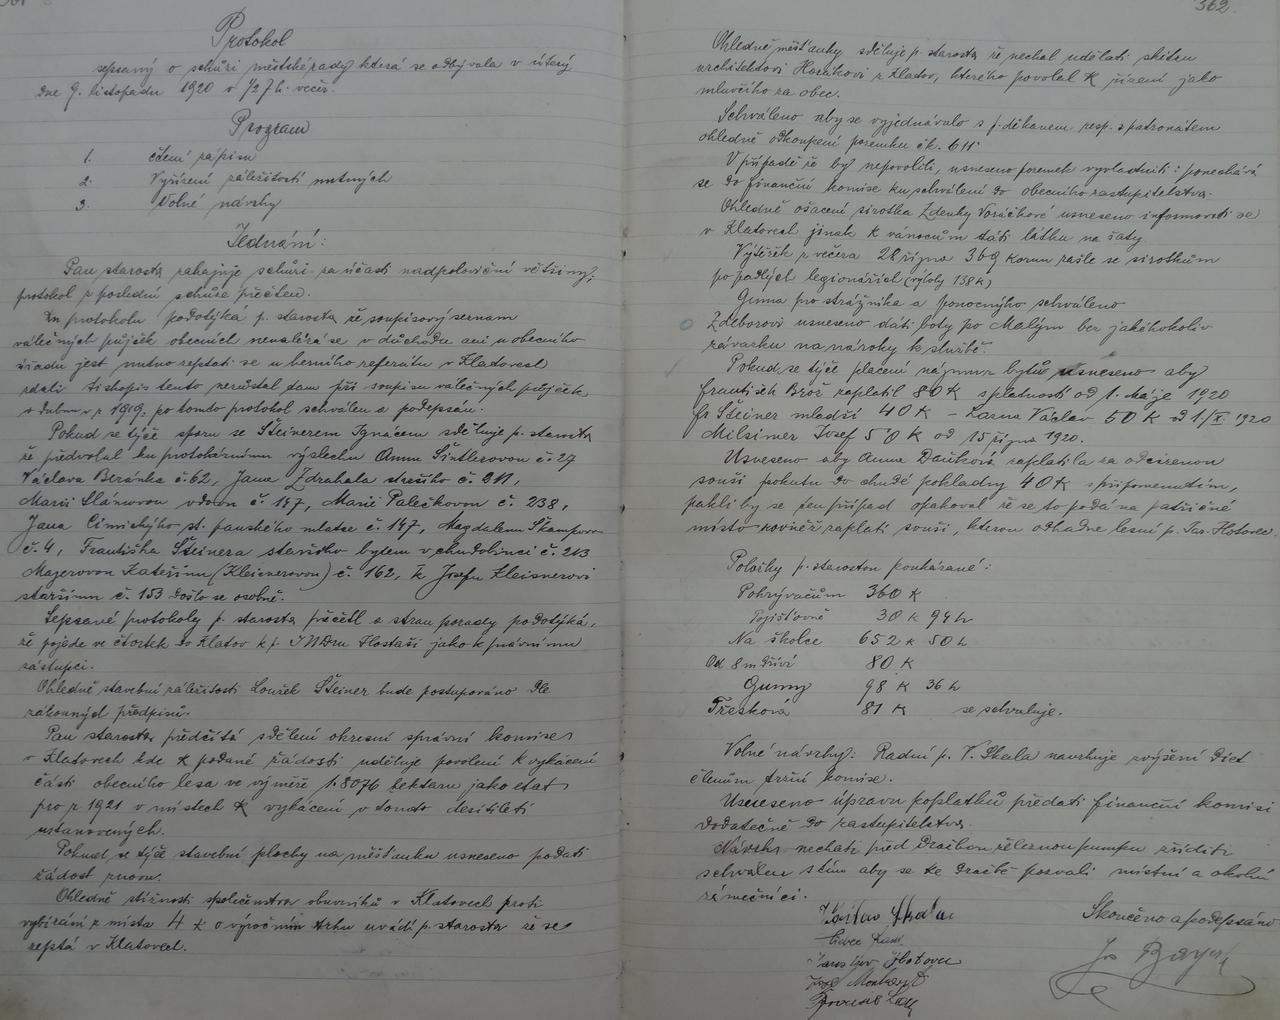 362.
Protokol
sepsaný o schůzi městské rady která se odbývala v úterý
dne 9. listopadu 1920 v ½7 h. večer.
Program
1. čtení zápisu
2. Vyřízení záležitostí nutných
3. Volné návrhy
Jednání:
Pan starosta zahajuje schůzi za účasti nadpoloviční většiny;
protokol z poslední schůze přečten.
Ku protokolu podotýká p. starosta že soupisový seznam
válečných půjček obecních nenalézá se v důchodu ani u obecního
úřadu jest nutno zeptati se u berního referátu v Klatovech
zdali tiskopis tento nezůstal tam při soupisu válečných půjček
v dubnu v r 1919. po tomto protokol schválen a podepsán.
Pokud se týče sporu se Šteinerem Ignácem sděluje p. starosta
že předvolal ku protokárnímu výslechu Annu Šintlerovou č. 27
Václava Beránka č. 62, Jana Zdrahala strašího č. 211,
Marii Slámovou vdovu č. 147, Marii Palečkovou č. 238,
Jana Cimického st. panského mlatce č. 147, Magdalenu Škampovou
č. 4, Františka Šteinera staršího bytem v chudobinci č. 213
Majerovou Kateřinu (Kleisnerovou) č. 162, k Josefu Kleisnerovi
staršímu č. 153 došlo se osobně.
Sepsané protokoly p. starosta přečetl a stran porady podotýká,
že pojede ve čtvrtek do Klatov k p. JUDru Hostaši jako k právnímu
zástupci.
Ohledně stavební záležitosti Loužek Šteiner bude postupováno dle
zákonných předpisů.
Pan starosta předčítá sdělení okresní správní komise
v Klatovech kde k podané žádosti uděluje povolení k vykácení
části obecního lesa ve výměře 1.8076 hektaru jako etat
pro r 1921 v místech k vykácení v tomto desítiletí
ustanovených.
Pokud se týče stavební plochy na měšťanku usneseno podati
žádost znovu.
Ohledně stížnosti společenstva obuvníků v Klatovech proti
vybírání z místa 4 K o výročním trhu uvádí p. starosta že se
zeptá v Klatovech.
Ohledně měšťanky sděluje p. starosta že nechal udělati skizzu
architektovi Horákovi z Klatov, kterého povolal k řízení jako
mluvčího za obec.
Schváleno aby se vyjednávalo s p. děkanem resp. s patronátem
ohledně odkoupení pozemku čk. 611
V případě že by nepovolili, usneseno pozemek vyvlastniti: ponechává
se do finanční komise ku schválení do obecního zastupitelstva.
Ohledně ošacení sirotka Zdenky Voráčkové usneseno informovati se
v Klatovech jinak k vánocům dáti látku na šaty.
Výtěžek z večera 28 října 369 korun zašle se sirotkům
po padlých legionářích (výlohy 138 K)
Guma pro strážníka a ponocného schváleno
Zdeborovi usneseno dáti boty po Malým bez jakéhokoliv
závazku na nároky k službě.
Pokud se týče placení nájmu bytů usneseno aby
František Brož zaplatil 80 K splatností od 1. máje 1920
fr Šteiner mladší 40 K – Karna Václav 50 K od 1/X. 1920
Milsimer Josef 50 K od 15 října 1920.
Usneseno aby Anna Daňková zaplatila za odcizenou
souši pokutu do chudé pokladny 40 K s připomenutím,
pakli by se ten případ opakoval že se to podá na patřičné
místo rovněž zaplatí souši, kterou odhadne lesní p. Jar. Hotovec.
Položky p. starostou poukázané:
Pohrývačům 360 K
Pojišťovně 30 K 94 h
Na školce 652 K 50 h
Od 8 m dříví 80 K
Gumy 98 K 36 h
Třesková 81 K se schvaluje.
Volné návrhy: Radní p. V. Skala navrhuje zvýšení diet
členům tržní komise.
Usneseno úpravu poplatků předati finanční komisi
dodatečně do zastupitelstva.
Návrh nechati před Dražbou železnou pumpu zříditi
schválen s tím aby se ke dražbě pozvali místní a okolní
zámečníci.
Skončeno a podepsáno
Václav Skala
Jos Bayer
Jaroslav Hotovec